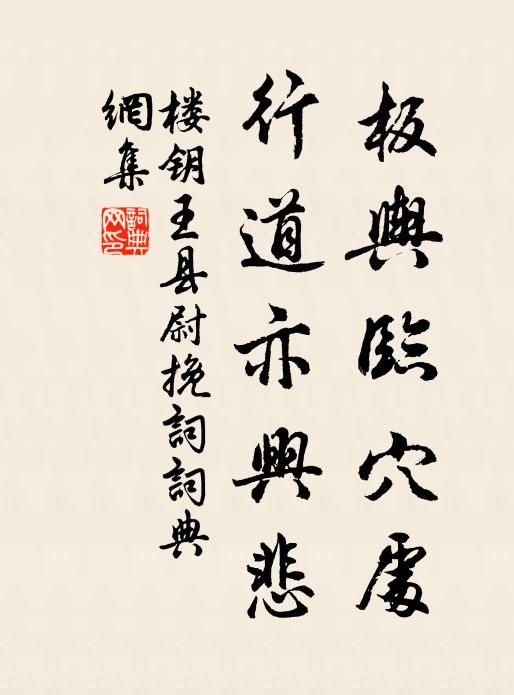 板輿臨穴處
行道亦興悲
楼钥王县尉挽詞詞典
網集
詞典网印